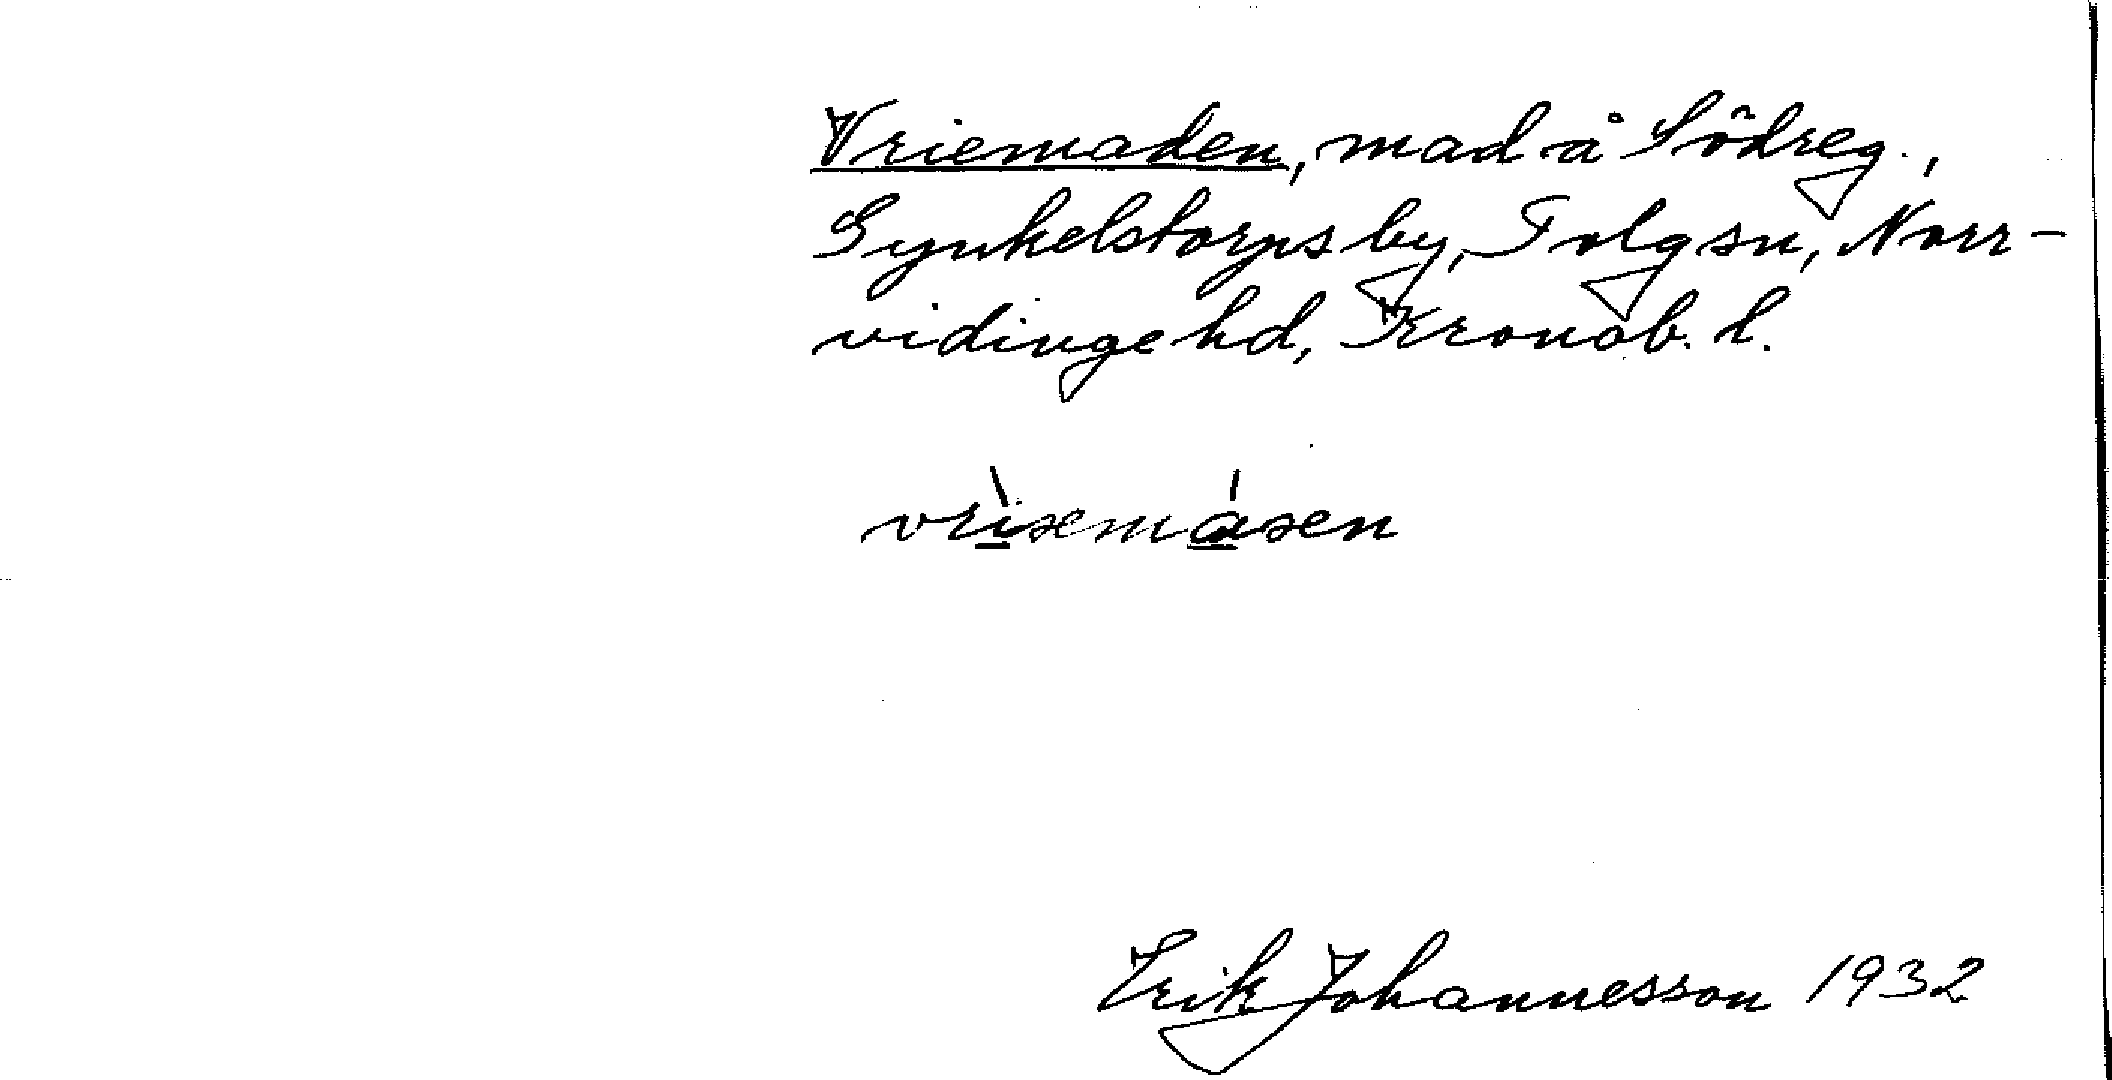 Vriemaden, mad å Södreg.,
Synkelstorps by, Tolg sn, Norr-
vidinge hd, Kronob. l.
vrìsemásen
Erik Johannesson 1932